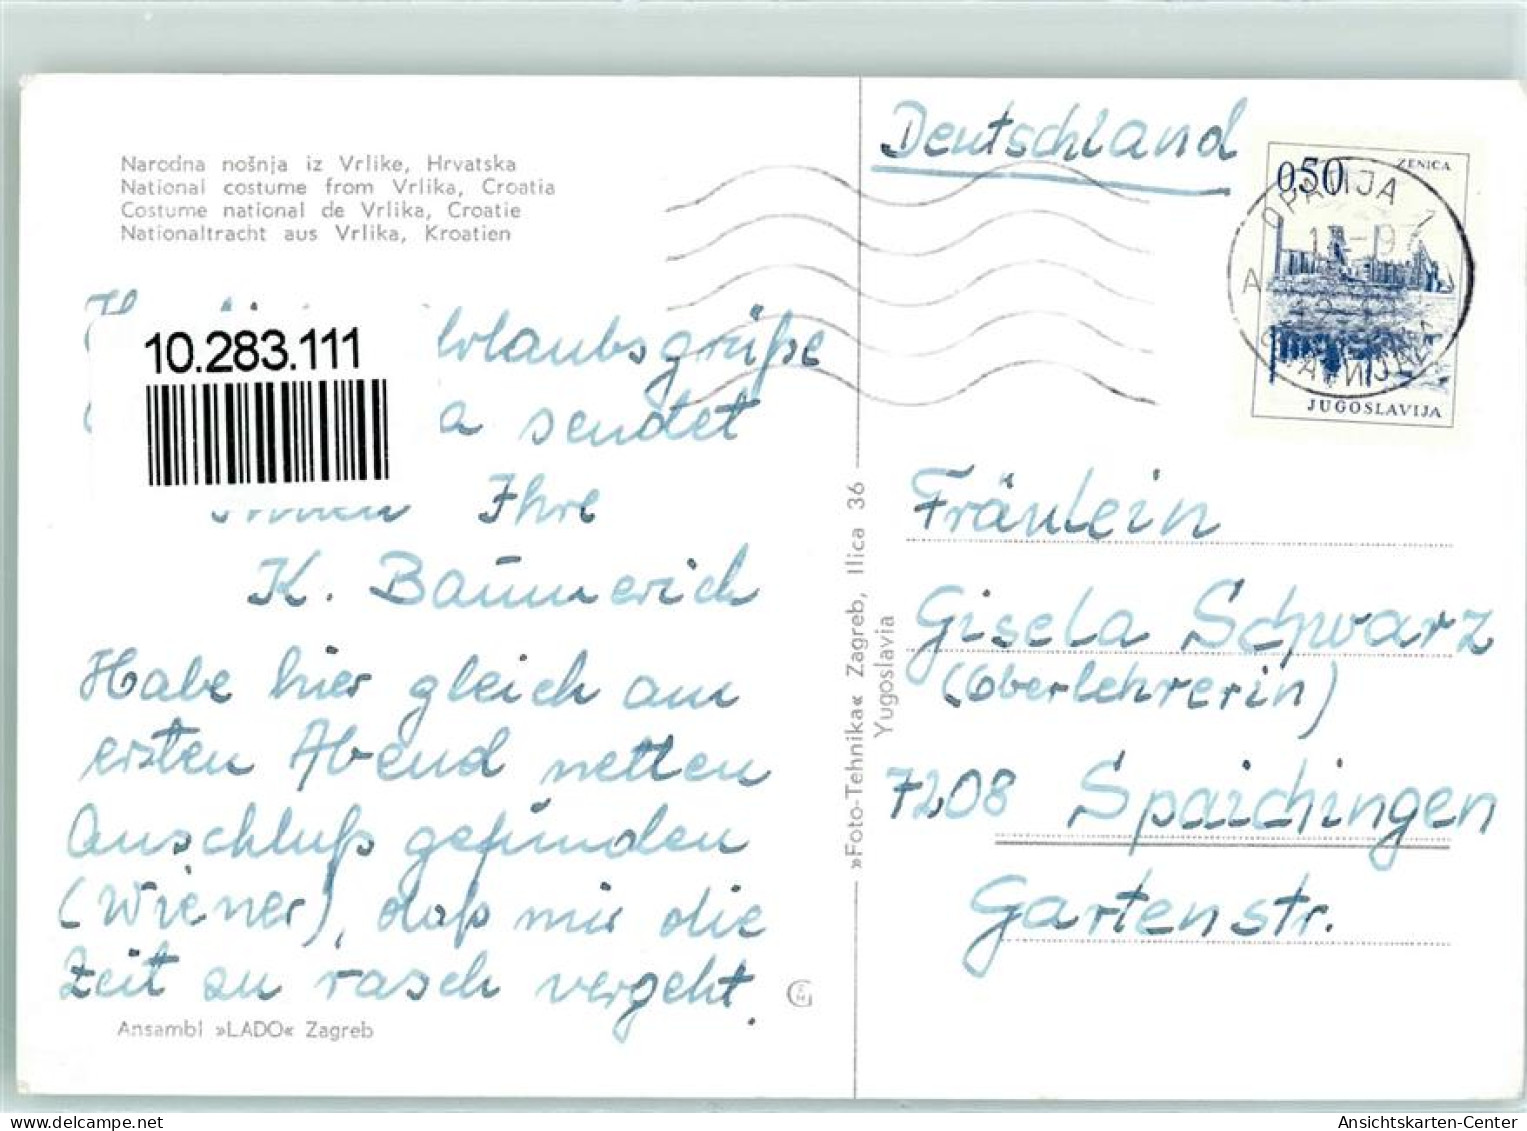 Narodna nošnja iz Vrlike, Hrvatska
National costume from Vrlika, Croatia
Costume national de Vrlika, Croatie
Nationaltracht aus Vrlika, Kroatien
10.283.111
Urlaubsgrüße
sendet
Ihnen Ihre
K. Baumerich
Habe hier gleich am
ersten Abend netten
Anschluß gefunden
(Wiener), daß mir die
Zeit zu rasch vergeht.
Ansambl »LADO« Zagreb
»Foto-Tehnika« Zagreb, Ilica 36
Yugoslavia
Deutschland
0,50
ZENICA
OPATIJA 1
JUGOSLAVIJA
Fräulein
Gisela Schwarz
(Oberlehrerin)
7208 Spaichingen
Gartenstr.
Ansichtskarten-Center